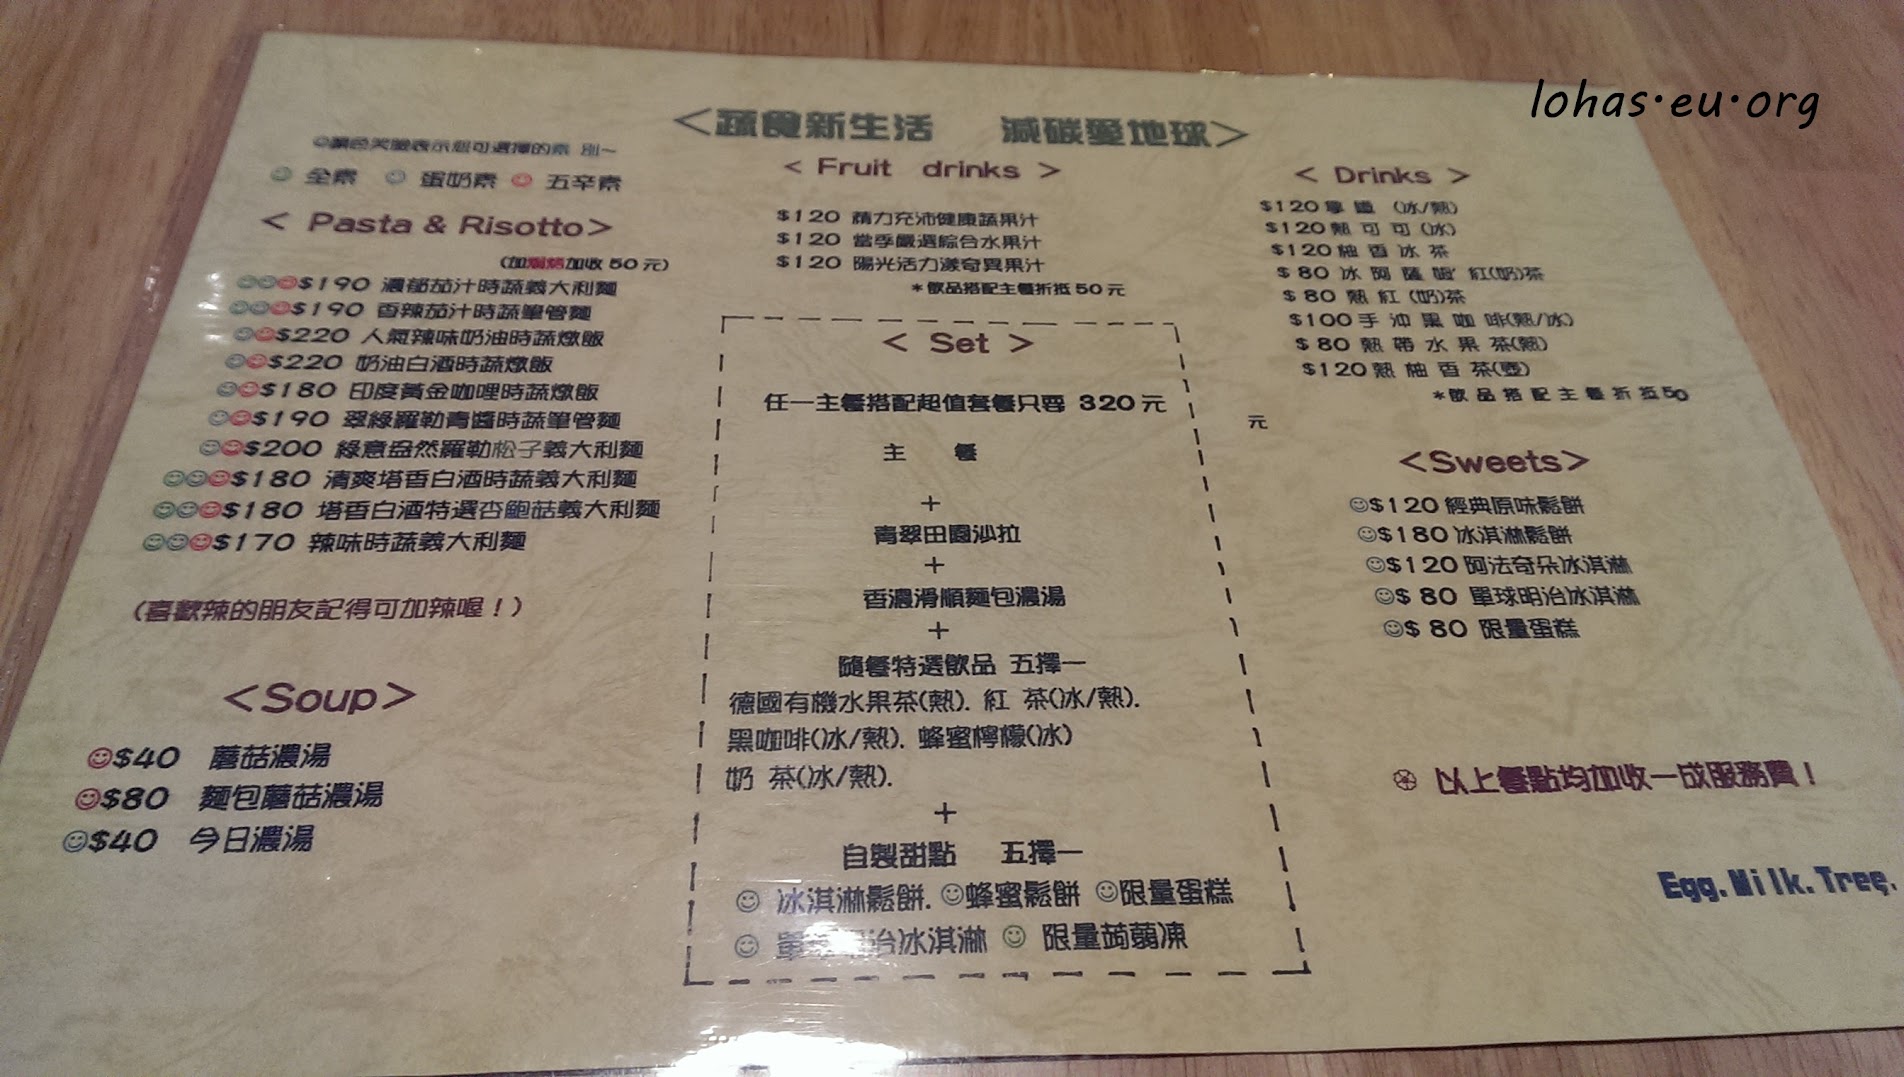 lohas·eu·org
<蔬食新生活 減碳愛地球>
☺顏色笑臉表示您可選擇的素 別~
☺ 全素 ☺ 蛋奶素 ☺ 五辛素
< Pasta & Risotto>
(加焗烤加收 50 元)
☺☺☺$190 濃郁茄汁時蔬義大利麵
☺☺☺$190 香辣茄汁時蔬筆管麵
☺☺$220 人氣辣味奶油時蔬燉飯
☺☺$220 奶油白酒時蔬燉飯
☺☺$180 印度黃金咖哩時蔬燉飯
☺☺$190 翠綠羅勒青醬時蔬筆管麵
☺☺$200 綠意盎然羅勒松子義大利麵
☺☺☺$180 清爽塔香白酒時蔬義大利麵
☺☺☺$180 塔香白酒特選杏鮑菇義大利麵
☺☺☺$170 辣味時蔬義大利麵
(喜歡辣的朋友記得可加辣喔!)
<Soup>
☺$40 蘑菇濃湯
☺$80 麵包蘑菇濃湯
☺$40 今日濃湯
< Fruit drinks >
$120 精力充沛健康蔬果汁
$120 當季嚴選綜合水果汁
$120 陽光活力漾奇異果汁
*飲品搭配主餐折抵 50 元
< Set >
任一主餐搭配超值套餐只要 320 元
主 餐
+
青翠田園沙拉
+
香濃滑順麵包濃湯
+
隨餐特選飲品 五擇一
德國有機水果茶(熱). 紅 茶(冰/熱).
黑咖啡(冰/熱). 蜂蜜檸檬(冰)
奶 茶(冰/熱).
+
自製甜點 五擇一
☺ 冰淇淋鬆餅. ☺蜂蜜鬆餅 ☺限量蛋糕
☺ 單 治冰淇淋 ☺ 限量蒟蒻凍
< Drinks >
$120拿 鐵 (冰/熱)
$120熱 可 可 (冰)
$120柚 香 冰 茶
$ 80 冰 阿 薩 姆 紅(奶)茶
$ 80 熱 紅 (奶)茶
$100手 沖 黑 咖 啡(熱/冰)
$ 80 熱 帶 水 果 茶(熱)
$120熱 柚 香 茶(壺)
*飲 品 搭 配 主 餐 折 抵 50
元
<Sweets>
☺$120經典原味鬆餅
☺$180冰淇淋鬆餅
☺$120阿法奇朵冰淇淋
☺$ 80 單球明治冰淇淋
☺$ 80 限量蛋糕
以上餐點均加收一成服務費!
Egg.Milk.Tree.